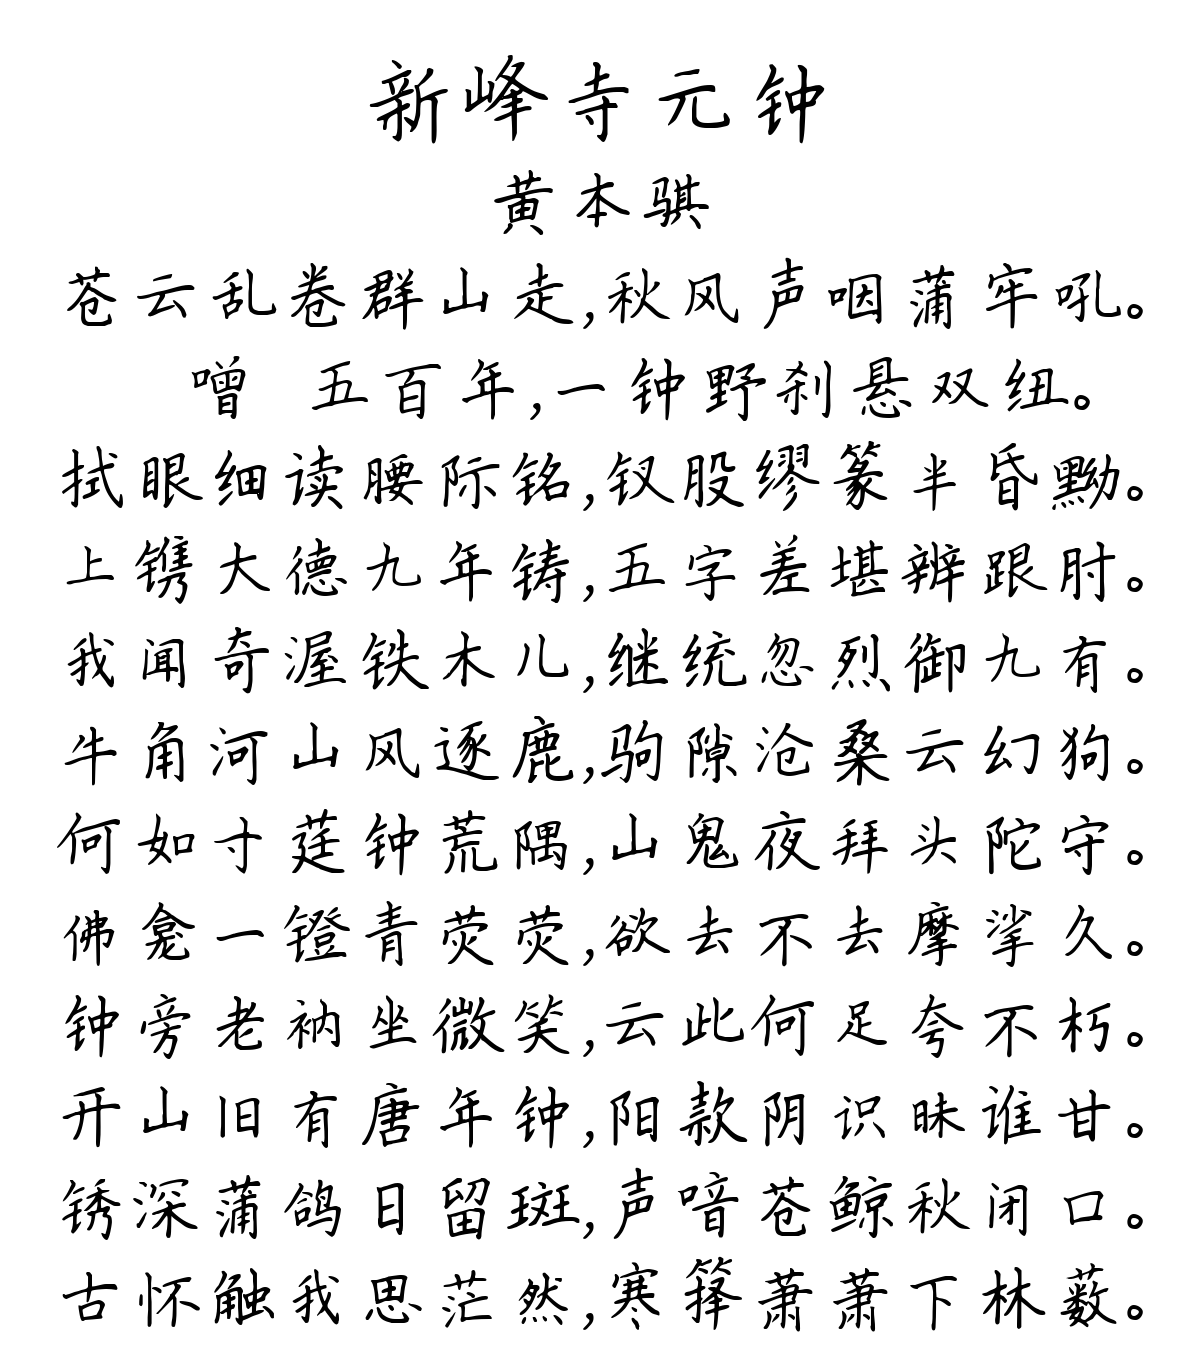 新峰寺元钟
黄本骐
苍云乱卷群山走,秋风声咽蒲牢吼。
噌 五百年,一钟野刹悬双纽。
拭眼细读腰际铭,钗股缪篆半昏黝。
上镌大德九年铸,五字差堪辨跟肘。
我闻奇渥铁木儿,继统忽烈御九有。
牛角河山风逐鹿,驹隙沧桑云幻狗。
何如寸莛钟荒隅,山鬼夜拜头陀守。
佛龛一镫青荧荧,欲去不去摩挲久。
钟旁老衲坐微笑,云此何足夸不朽。
开山旧有唐年钟,阳款阴识昧谁甘。
锈深蒲鸽日留斑,声喑苍鲸秋闭口。
古怀触我思茫然,寒箨萧萧下林薮。